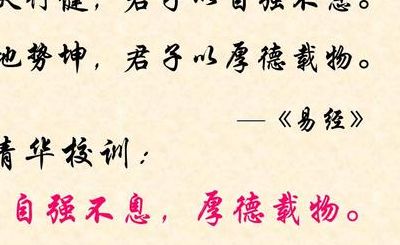 天行健，君子以自强不息。
地势坤，君子以厚德载物。
—《易经》
清华校训：
自强不息，厚德载物。